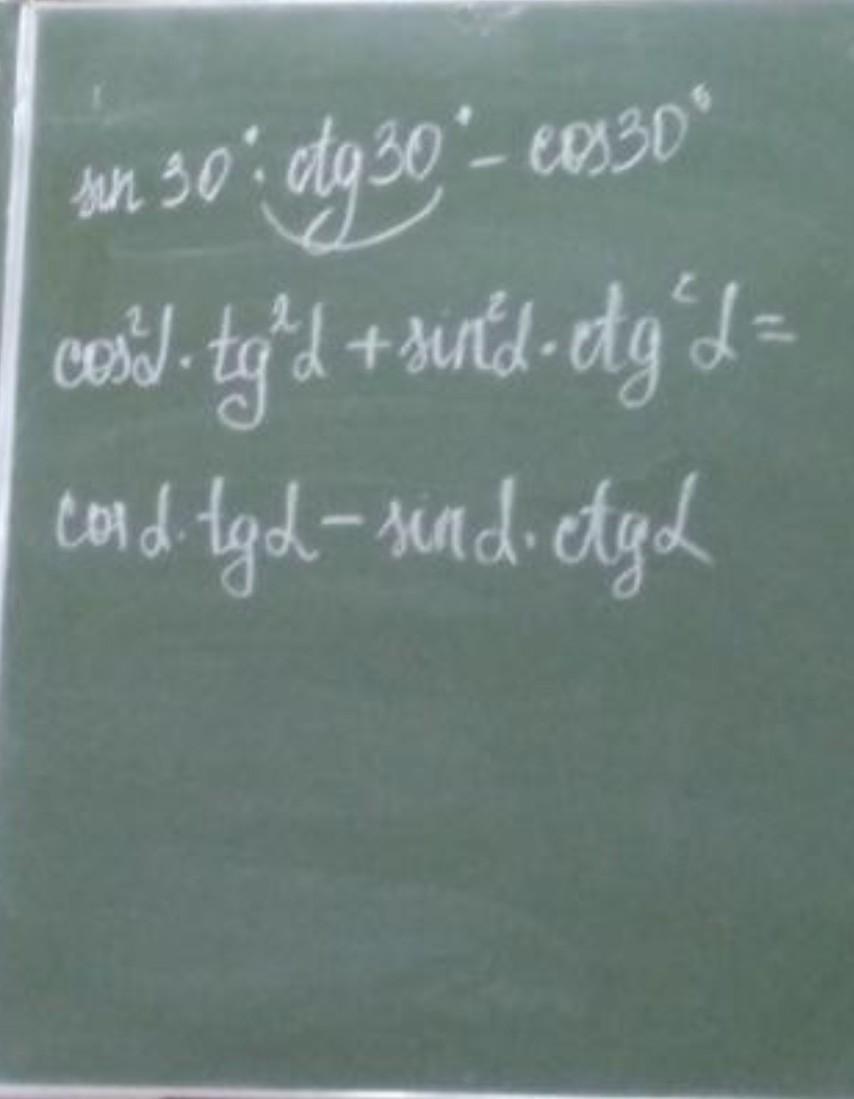 sin 30° · ctg 30° - cos 30°
cos²α · tg²α + sin²α · ctg²α =
cos α · tg α - sin α · ctg α